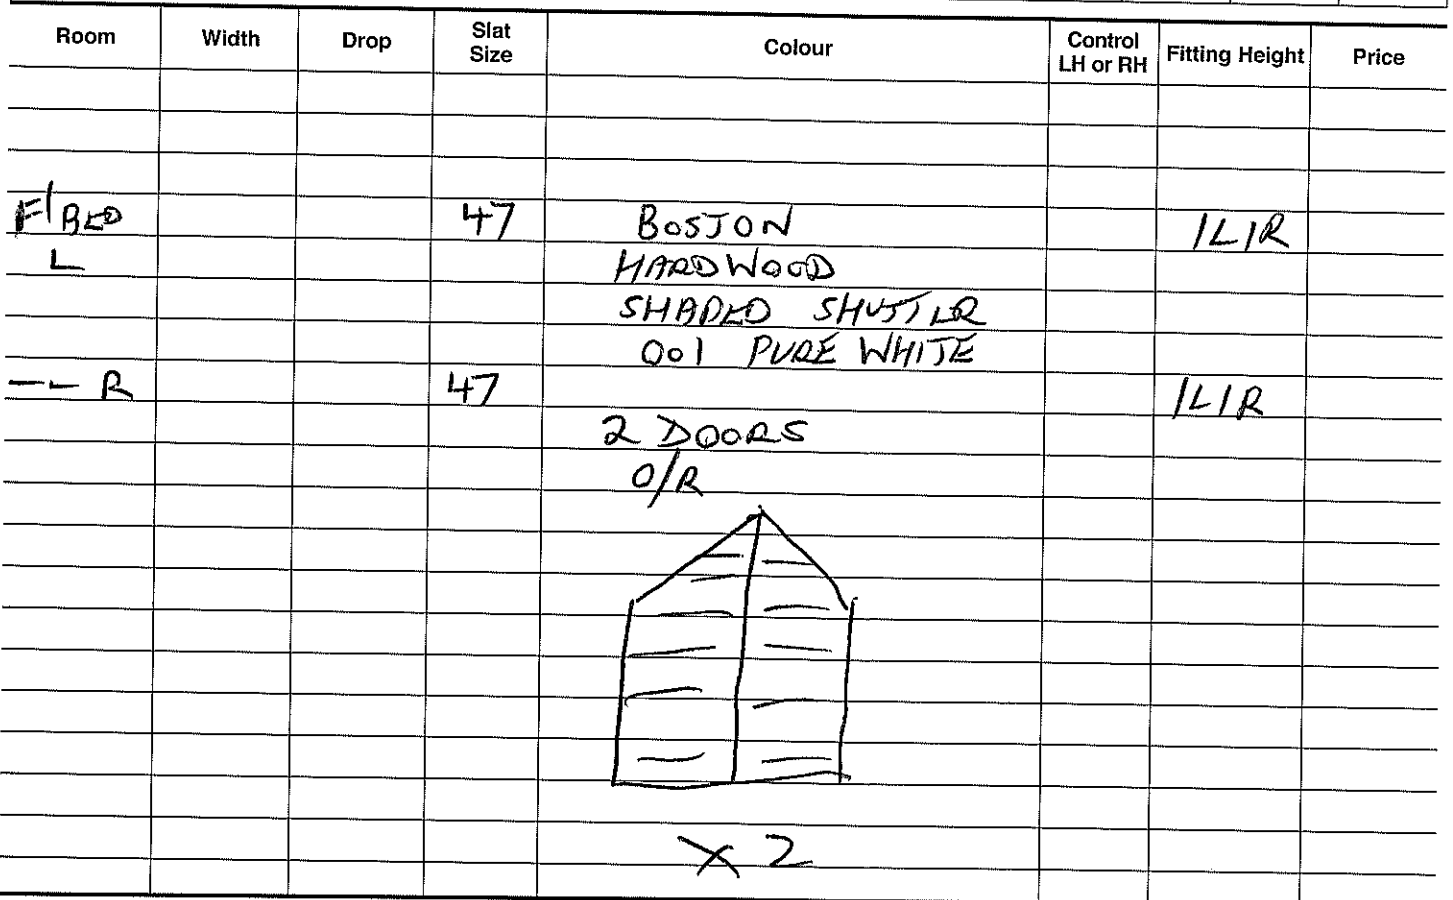 Room Width Drop Slat Size Colour Control LH or RH Fitting Height Price
F/BED 47 BOSTON 1L1R
L HARDWOOD
SHAPED SHUTTER
001 PURE WHITE
-- R 47 1L1R
2 DOORS
O/R
X 2